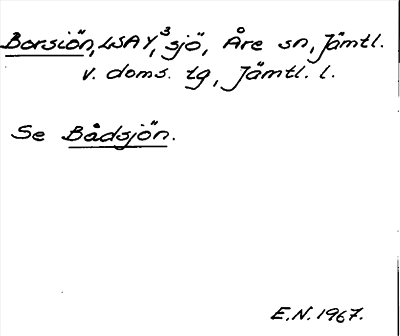 Borsiön, LSAY,³ sjö, Åre sn, Jämtl.
v. doms. tg, Jämtl. l.
Se Bådsjön.
E.N. 1967.